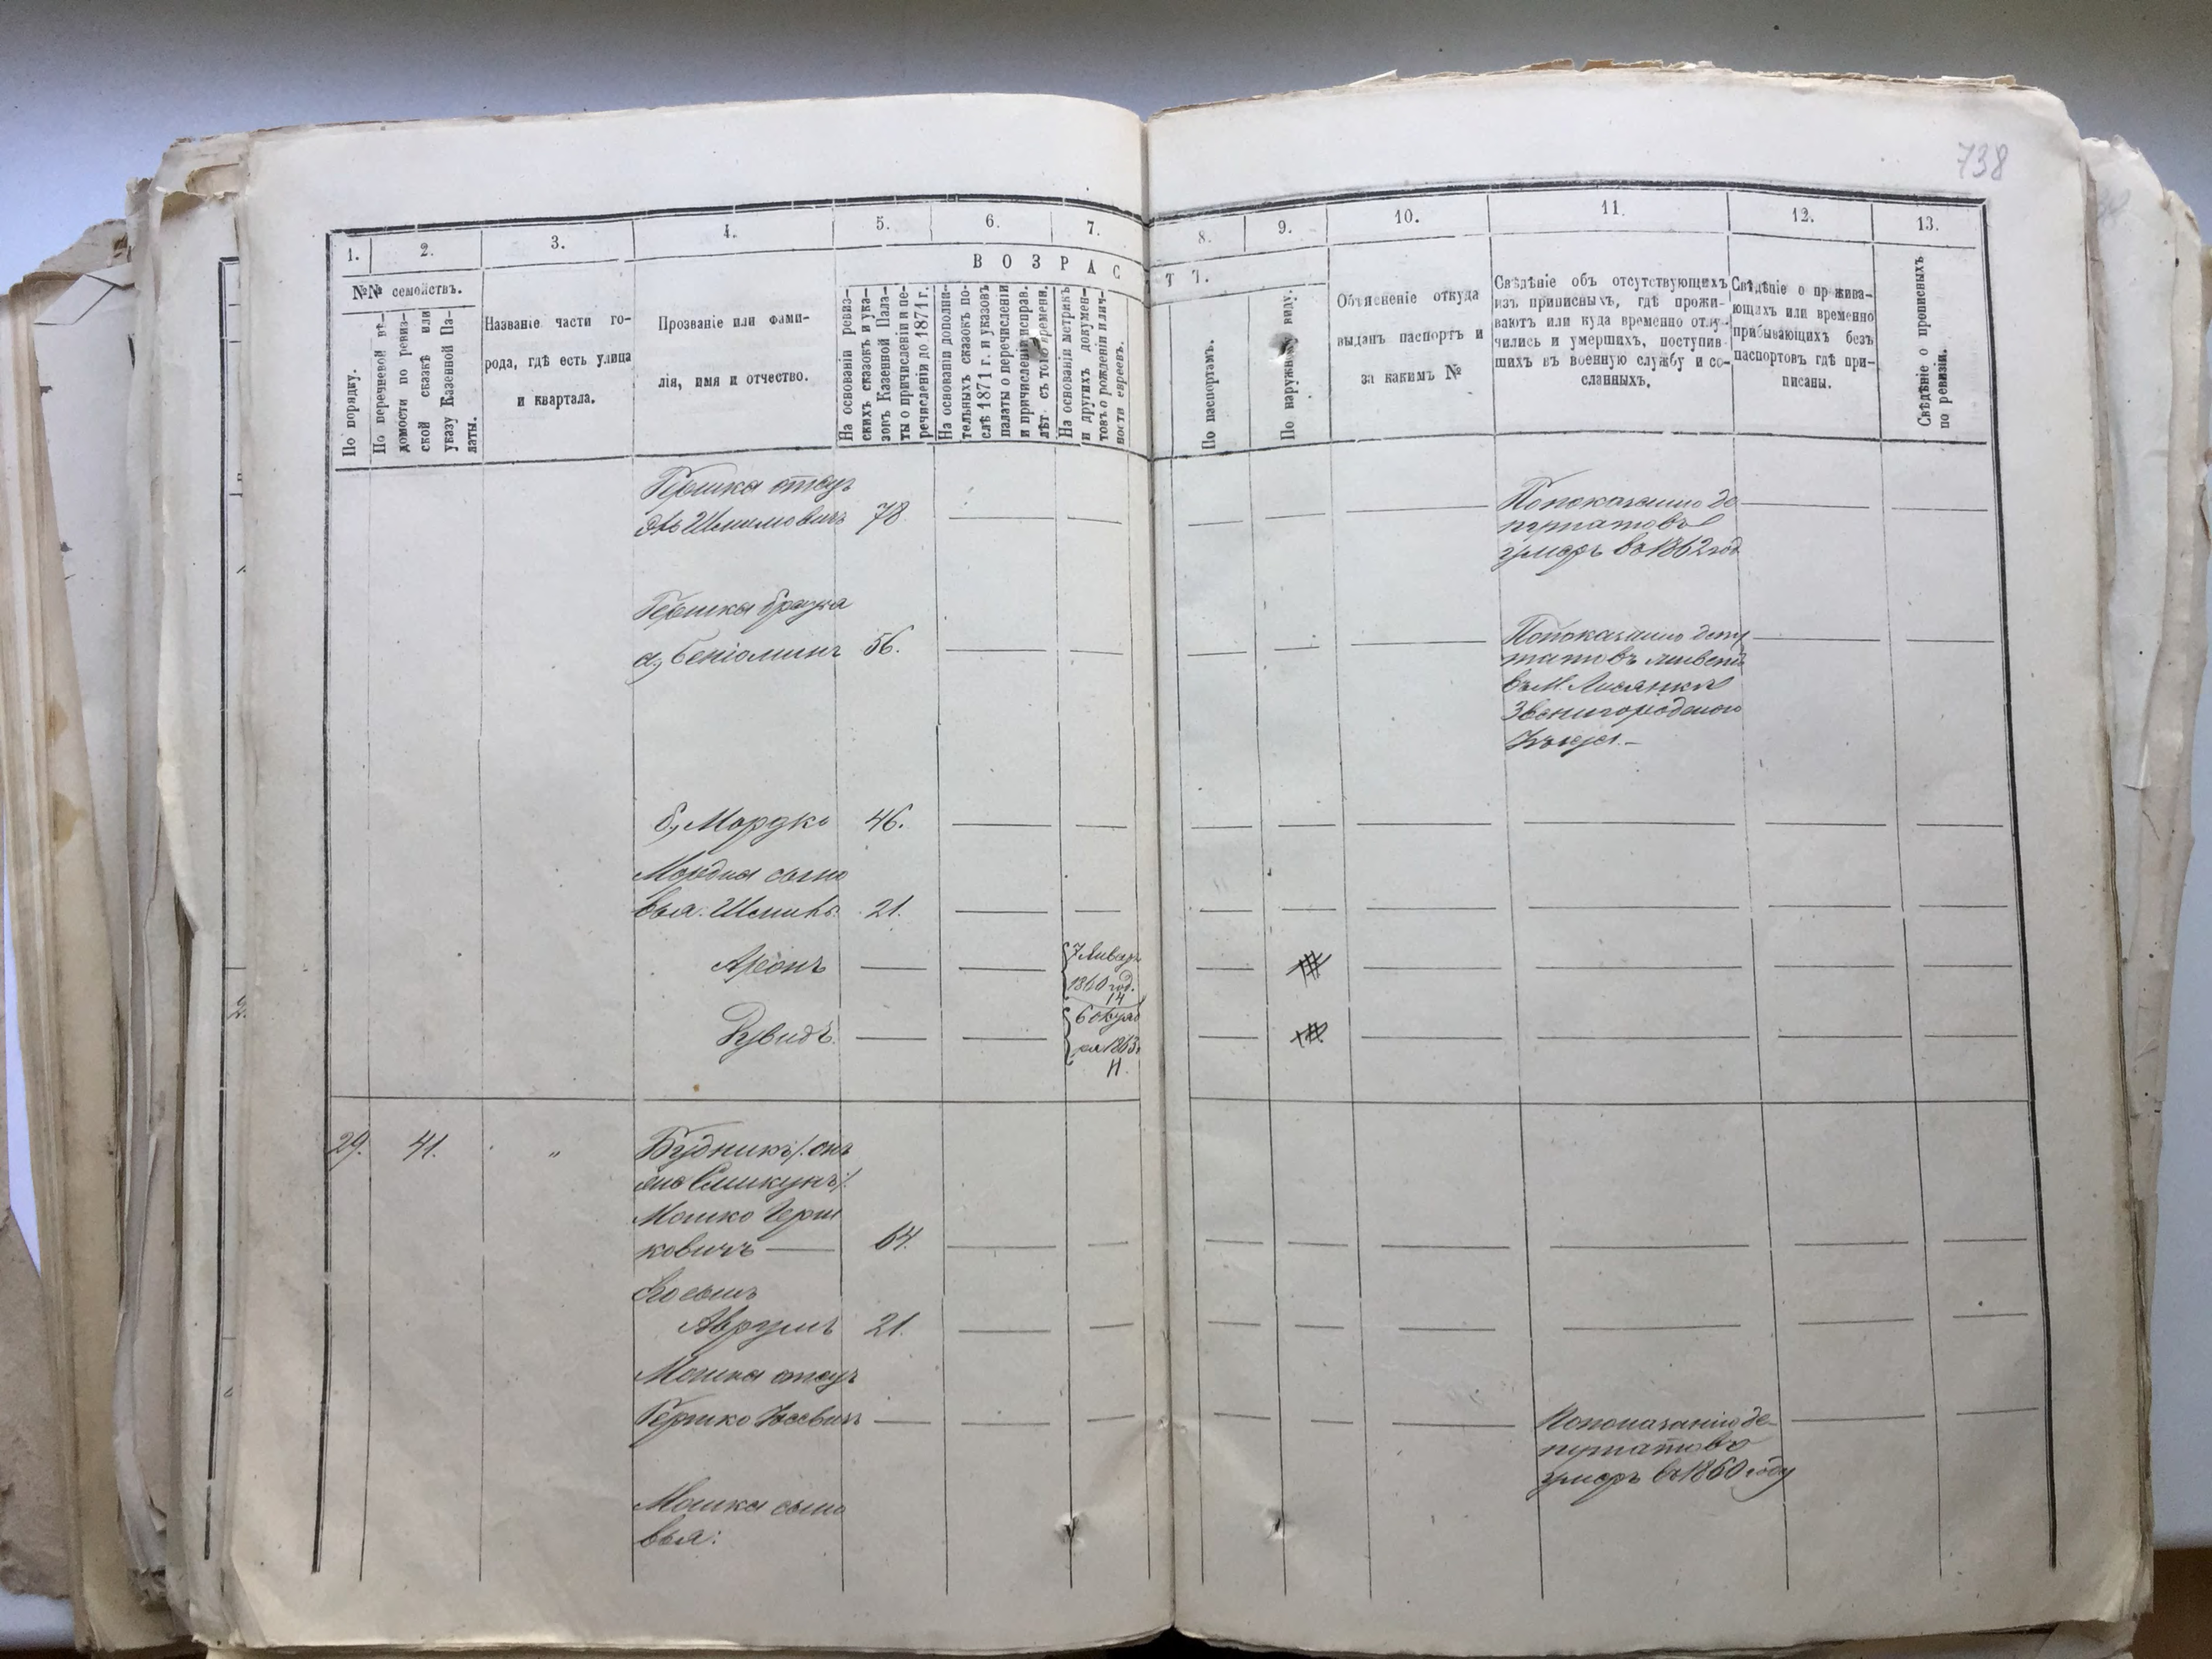 738
1.
2.
3.
4.
5.
6.
7.
8.
9.
10.
11.
12.
13.
В О З Р А С
Т Ъ.
№№ семействъ.
По порядку.
По перечневой вѣ-
домости по ревиз-
ской сказкѣ или
указу Казенной Па-
латы.
Названіе части го-
рода, гдѣ есть улица
и квартала.
Прозваніе или фами-
лія, имя и отчество.
На основаніи ревиз-
скихъ сказокъ и ука-
зовъ Казенной Пала-
ты о причисленіи и пе-
речисленіи до 1871 г.
На основаніи дополни-
тельныхъ сказокъ по-
слѣ 1871 г. и указовъ
палаты о перечисленіи
и причисленіи исправ.
лѣтъ съ того времени.
На основаніи метрикъ
и другихъ докумен-
товъ о рожденіи и лич-
ности евреевъ.
По паспортамъ.
По наружному виду.
Объясненіе откуда
выданъ паспортъ и
за какимъ №
Свѣдѣніе объ отсутствующихъ
изъ приписныхъ, гдѣ прожи-
ваютъ или куда временно отлу-
чились и умершихъ, поступив-
шихъ въ военную службу и со-
сланныхъ.
Свѣдѣніе о прожива-
ющихъ или временно
прибывающихъ безъ
паспортовъ гдѣ при-
писаны.
Свѣдѣніе о прописныхъ
по ревизіи.
Гершка отецъ
Шлимовичъ 78
По показанію де
путатовъ
умеръ въ 1862 год
Гершка братья
а, Беніоминъ 56.
По показанію депу
татовъ живетъ
въ М. Лисянкѣ
Звенигородского
уѣзда.
б, Мордко 46.
Мордка сыно
вья: 21.
Аронъ
7 Январ
1860 год.
14
Рувидъ
6 октяб
ря 1863
11.
29. 41. "
Будникъ /: онъ
же Сликунъ :/
Мошко Герш
ковичъ 64.
Его сынъ
Аврумъ 21.
Мошка отецъ
Гершко Іосевичъ
По показанію де-
путатовъ
умеръ въ 1860 году
Мошка сыно
вья: